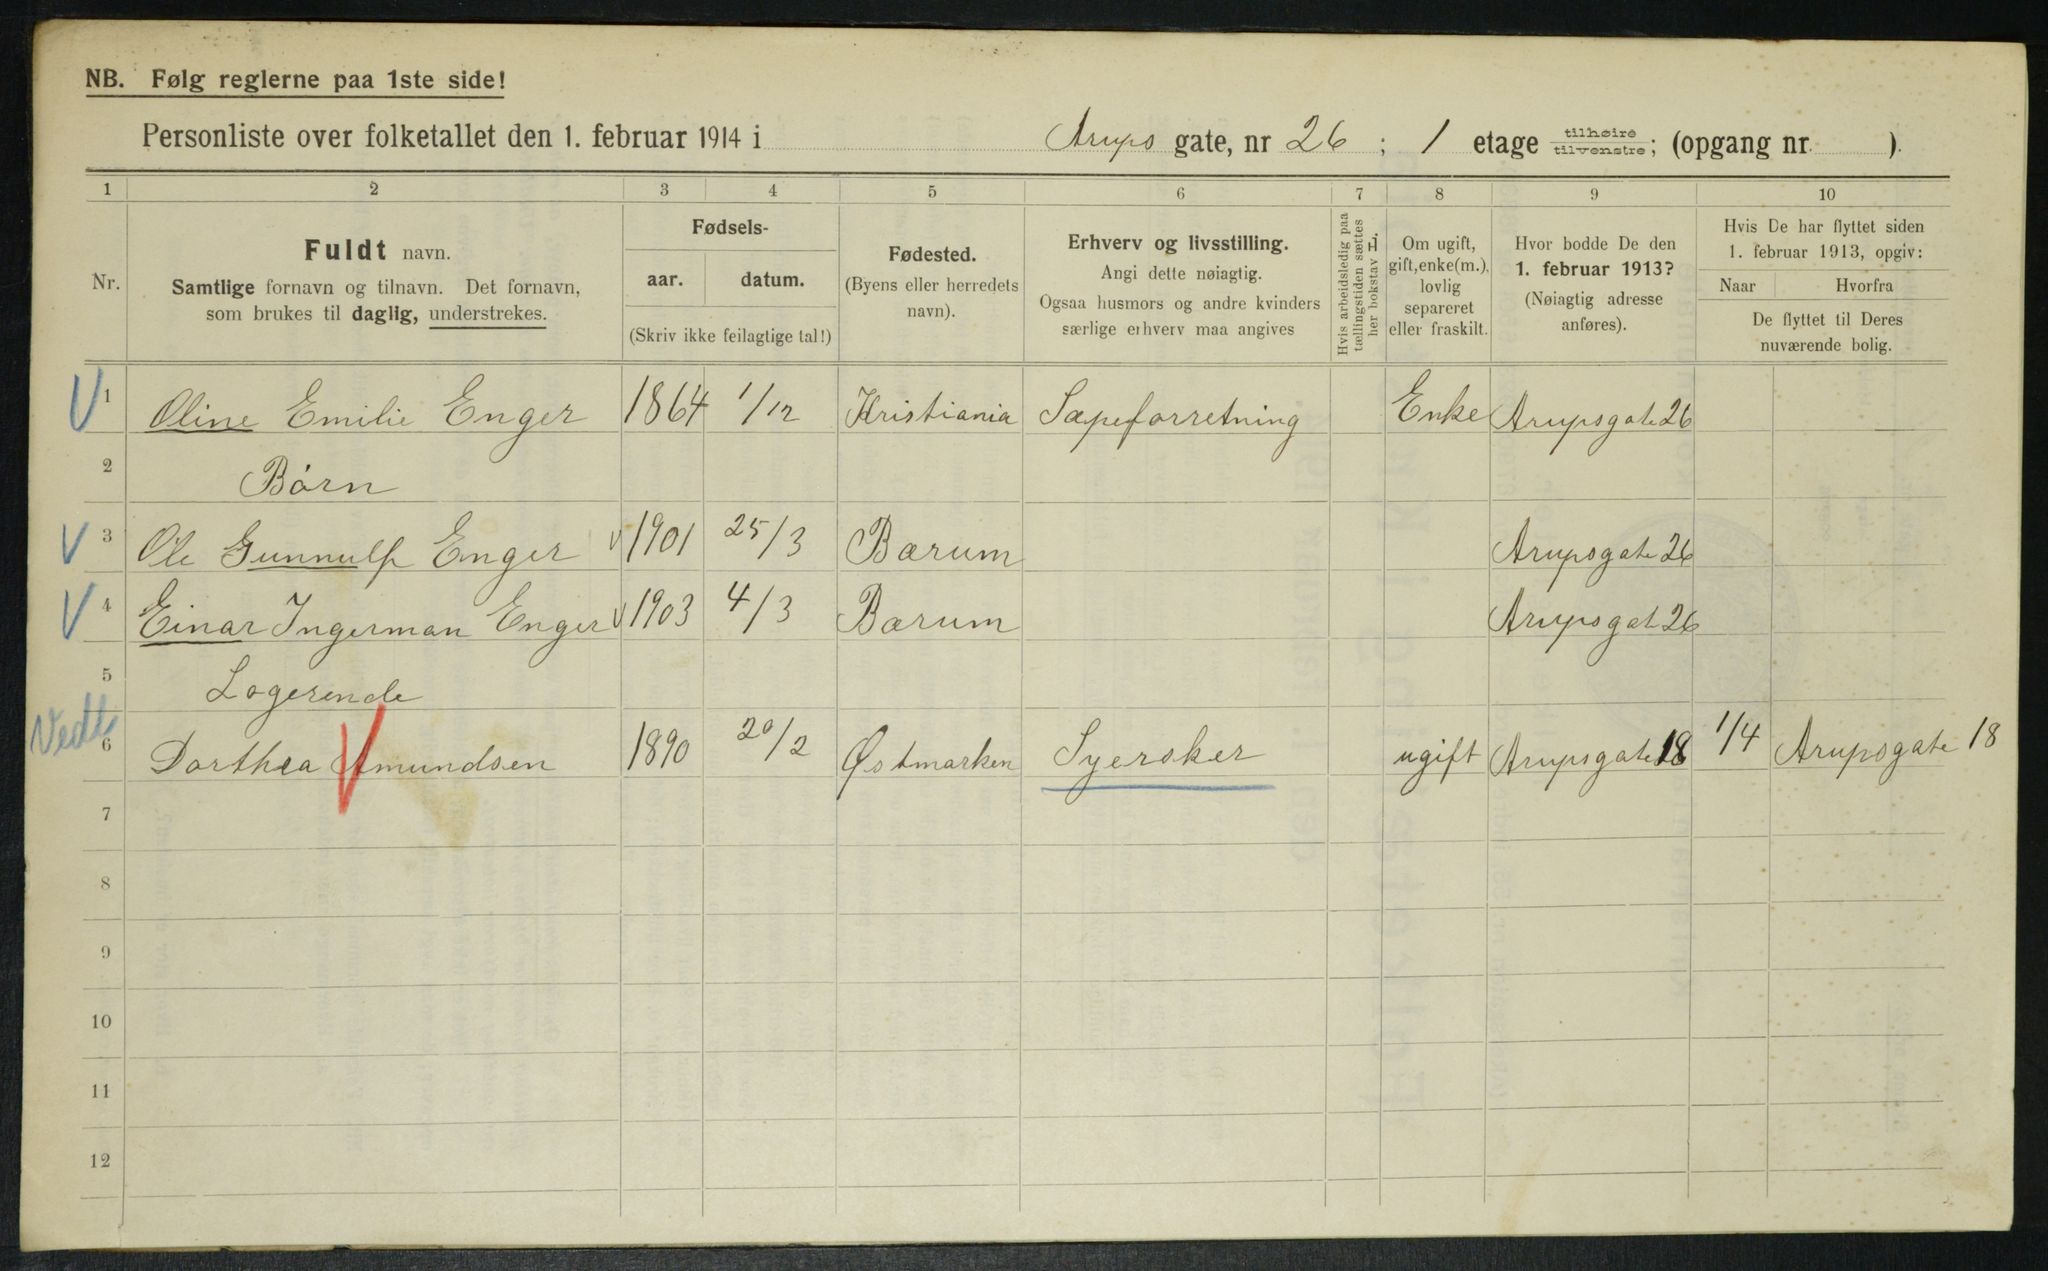 NB. Følg reglerne paa 1ste side!
Personliste over folketallet den 1. februar 1914 i Arups gate, nr 26 ; 1 etage tilhøire tilvenstre; (opgang nr. ).
1 2 3 4 5 6 7 8 9 10
Nr.
Fuldt navn.
Samtlige fornavn og tilnavn. Det fornavn,
som brukes til daglig, understrekes.
Fødsels-
aar. datum.
(Skriv ikke feilagtige tal!)
Fødested.
(Byens eller herredets
navn).
Erhverv og livsstilling.
Angi dette nøiagtig.
Ogsaa husmors og andre kvinders
særlige erhverv maa angives
Hvis arbeidsledig paa
tællingstiden sættes
her bokstav L.
Om ugift,
gift, enke(m.),
lovlig
separeret
eller fraskilt.
Hvor bodde De den
1. februar 1913?
(Nøiagtig adresse
anføres).
Hvis De har flyttet siden
1. februar 1913, opgiv:
Naar Hvorfra
De flyttet til Deres
nuværende bolig.
V 1 Oline Emilie Enger 1864 1/12 Kristiania Sæpeforretning Enke Arupsgate 26
2 Börn
V 3 Ole Gunnulf Enger V 1901 25/3 Bærum Arupsgate 26
V 4 Einar Ingerman Enger V 1903 4/3 Bærum Arupsgat 26
5 Logerende
Vedt 6 Dorthea Amundsen 1890 20/2 Østmarken Syersker ugift Arupsgate 18 1/4 Arupsgate 18
7
8
9
10
11
12